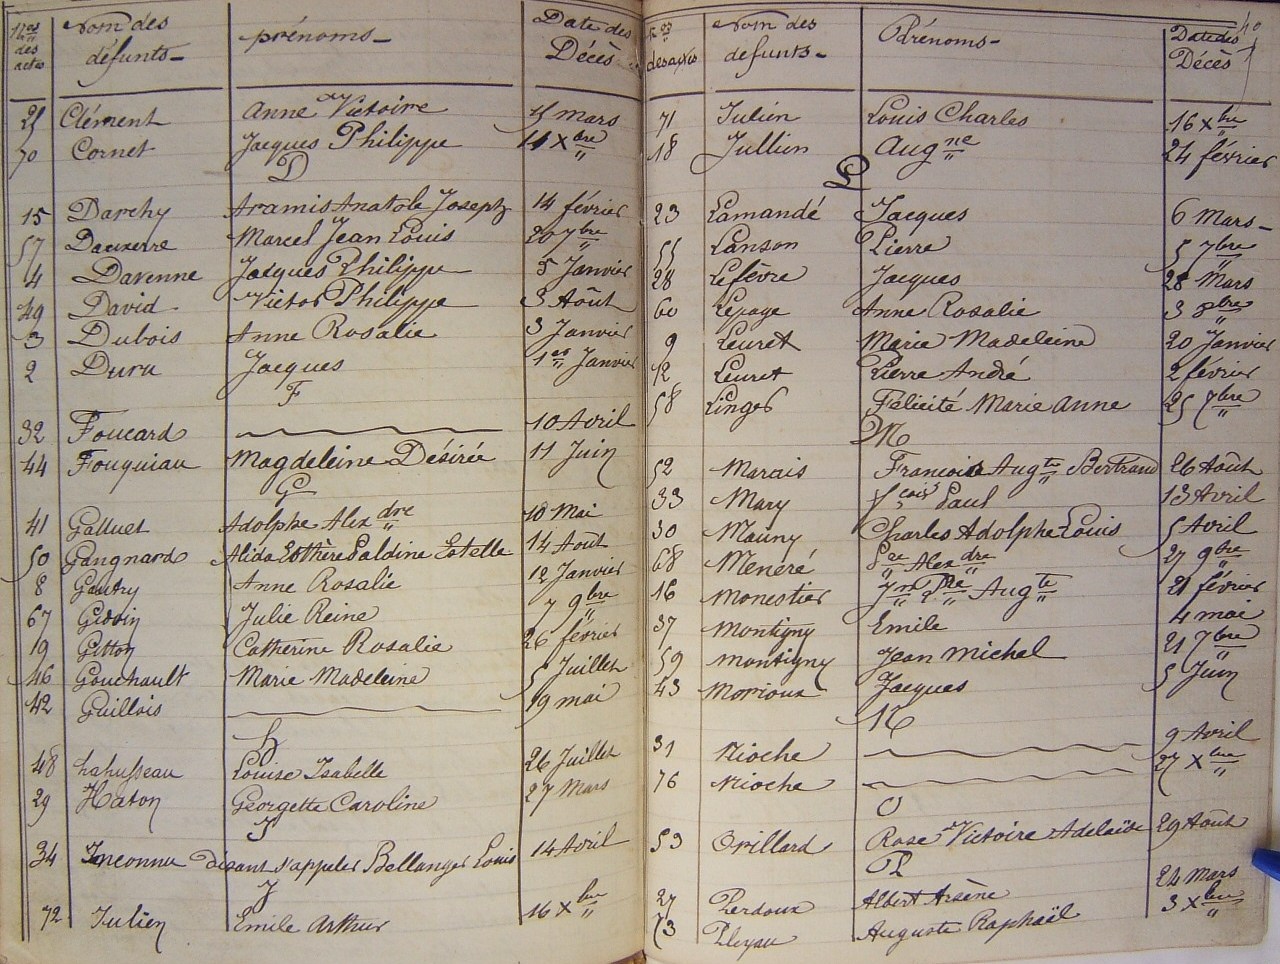 Nos des actes Nom des défunts Prénoms Date des Décès
25 Clément Anne Victoire 15 mars
70 Cornet Jacques Philippe 11 Xbre
D
15 Darchy Aramis Anatole Joseph 14 février
57 Dauxerre Marcel Jean Louis 20 7bre
4 Davenne Jacques Philippe 5 Janvier
49 David Victor Philippe 3 Août
3 Dubois Anne Rosalie 3 Janvier
2 Duru Jacques 1er Janvier
F
32 Foucard 10 Avril
44 Fouquiau Magdeleine Désirée 11 Juin
G
41 Galluet Adolphe Alexdre 18 Mai
50 Gangnard Alida Esthère Galdine Estelle 14 Août
8 Gautry Anne Rosalie 12 Janvier
67 Julie Reine 7 9bre
19 Gitton Catherine Rosalie 26 février
46 Gouchault Marie Madeleine 5 Juillet
42 Guillois 19 mai
H
48 hahusseau Louise Isabelle 26 Juillet
29 Haton Georgette Caroline 27 Mars
I
34 Inconnu disant s'appeler Bellanger Louis 14 Avril
J
72 Julien Emile Arthur 16 Xbre
40
Nos des actes Nom des défunts Prénoms Date des Décès
71 Julien Louis Charles 16 Xbre
18 Jullien Augne 24 février
L
23 Lamandé Jacques 6 Mars
55 Lanson Pierre 5 7bre
28 Lefèvre Jacques 28 Mars
60 Lepage Anne Rosalie 3 8bre
9 Leuret Marie Madeleine 20 Janvier
12 Leuret Pierre André 2 février
58 Linger Félicité Marie Anne 25 7bre
M
52 Marais François Augte Bertrand 26 Août
33 Mary fcois Paul 13 Avril
30 Mauny Charles Adolphe Louis 5 Avril
68 Menéré Alexdre 27 9bre
16 Monestier Augte 21 février
37 Montigny Emile 4 mai
59 Montigny Jean Michel 21 7bre
43 Morioux Jacques 5 Juin
N
31 Nioche 9 Avril
76 Nioche 27 Xbre
O
53 Orillard Rose Victoire Adelaïde 29 Août
P
27 Perdoux Albert Arsène 24 Mars
73 Pleyau Auguste Raphaël 3 Xbre